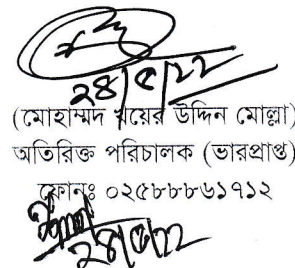 ২৪/৫/২২
(মোহাম্মদ খয়ের উদ্দিন মোল্লা)
অতিরিক্ত পরিচালক (ভারপ্রাপ্ত)
ফোনঃ ০২৫৮৮৮৬১৭১২
২৪/৫/২২